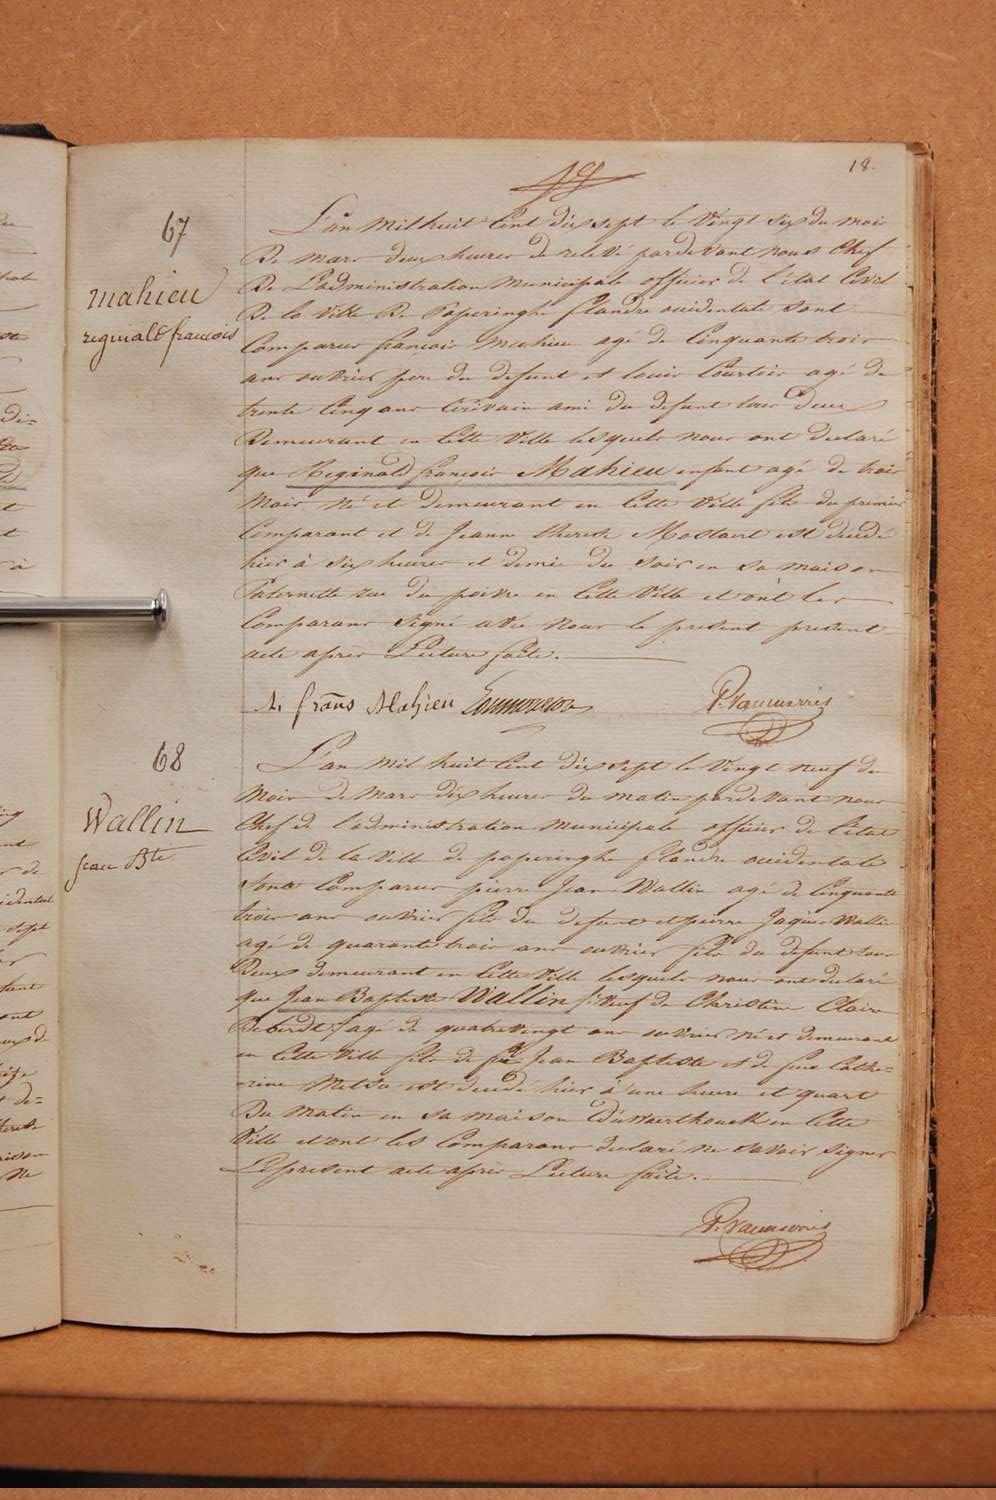 18.
67
mahieu
reginald francois
L'an mil huit Cent dix sept le Vingt six du mois
De mars deux heures de relevé pardevant nous Chef
De L'administration Municipale officier de l'état Civil
De la Ville De Poperinghe flandre occidentale sont
Comparus francois Mahieu agé de Cinquante trois
ans ouvrier pere du defunt et louis Courtois agé de
trente Cinq ans Ecrivain ami du defunt tous deux
Demeurant en Cette Ville lesquels nous ont declaré
que Reginald françois Mahieu enfant agé de trois
Mois né et demeurant en Cette Ville fils du premier
Comparant et de Jeanne therese Mostaert est decedé
hier à six heures et demie du soir en sa maison
Paternelle rue du poivre en Cette Ville et ont les
Comparans signé avec nous le present present
acte après Lecture faite.
frans Mahieu
68
Wallin
jean Bte
L'an mil huit Cent dix sept le Vingt neuf du
Mois De Mars dix heures du matin pardevant nous
Chef de l'administration municipale officier de l'état
Civil de la Ville de poperinghe flandre occidentale
sont Comparus pierre Jean Wallin agé de Cinquante
trois ans ouvrier fils du defunt et pierre Jaques Wallin
agé de quarante trois ans ouvrier fils du defunt tous
Deux demeurant en Cette Ville lesquels nous ont declaré
que Jean Baptiste Wallin Veuf de Christine Claire
agé de quatrevingt ans ouvrier né et demeurant
en Cette Ville fils de feu Jean Baptiste et de feue Cathe-
-rine Metsu est decedé hier à une heure et quart
Du matin en sa maison en Cette
Ville et ont les Comparans declaré ne savoir signer
Le present acte après Lecture faite.